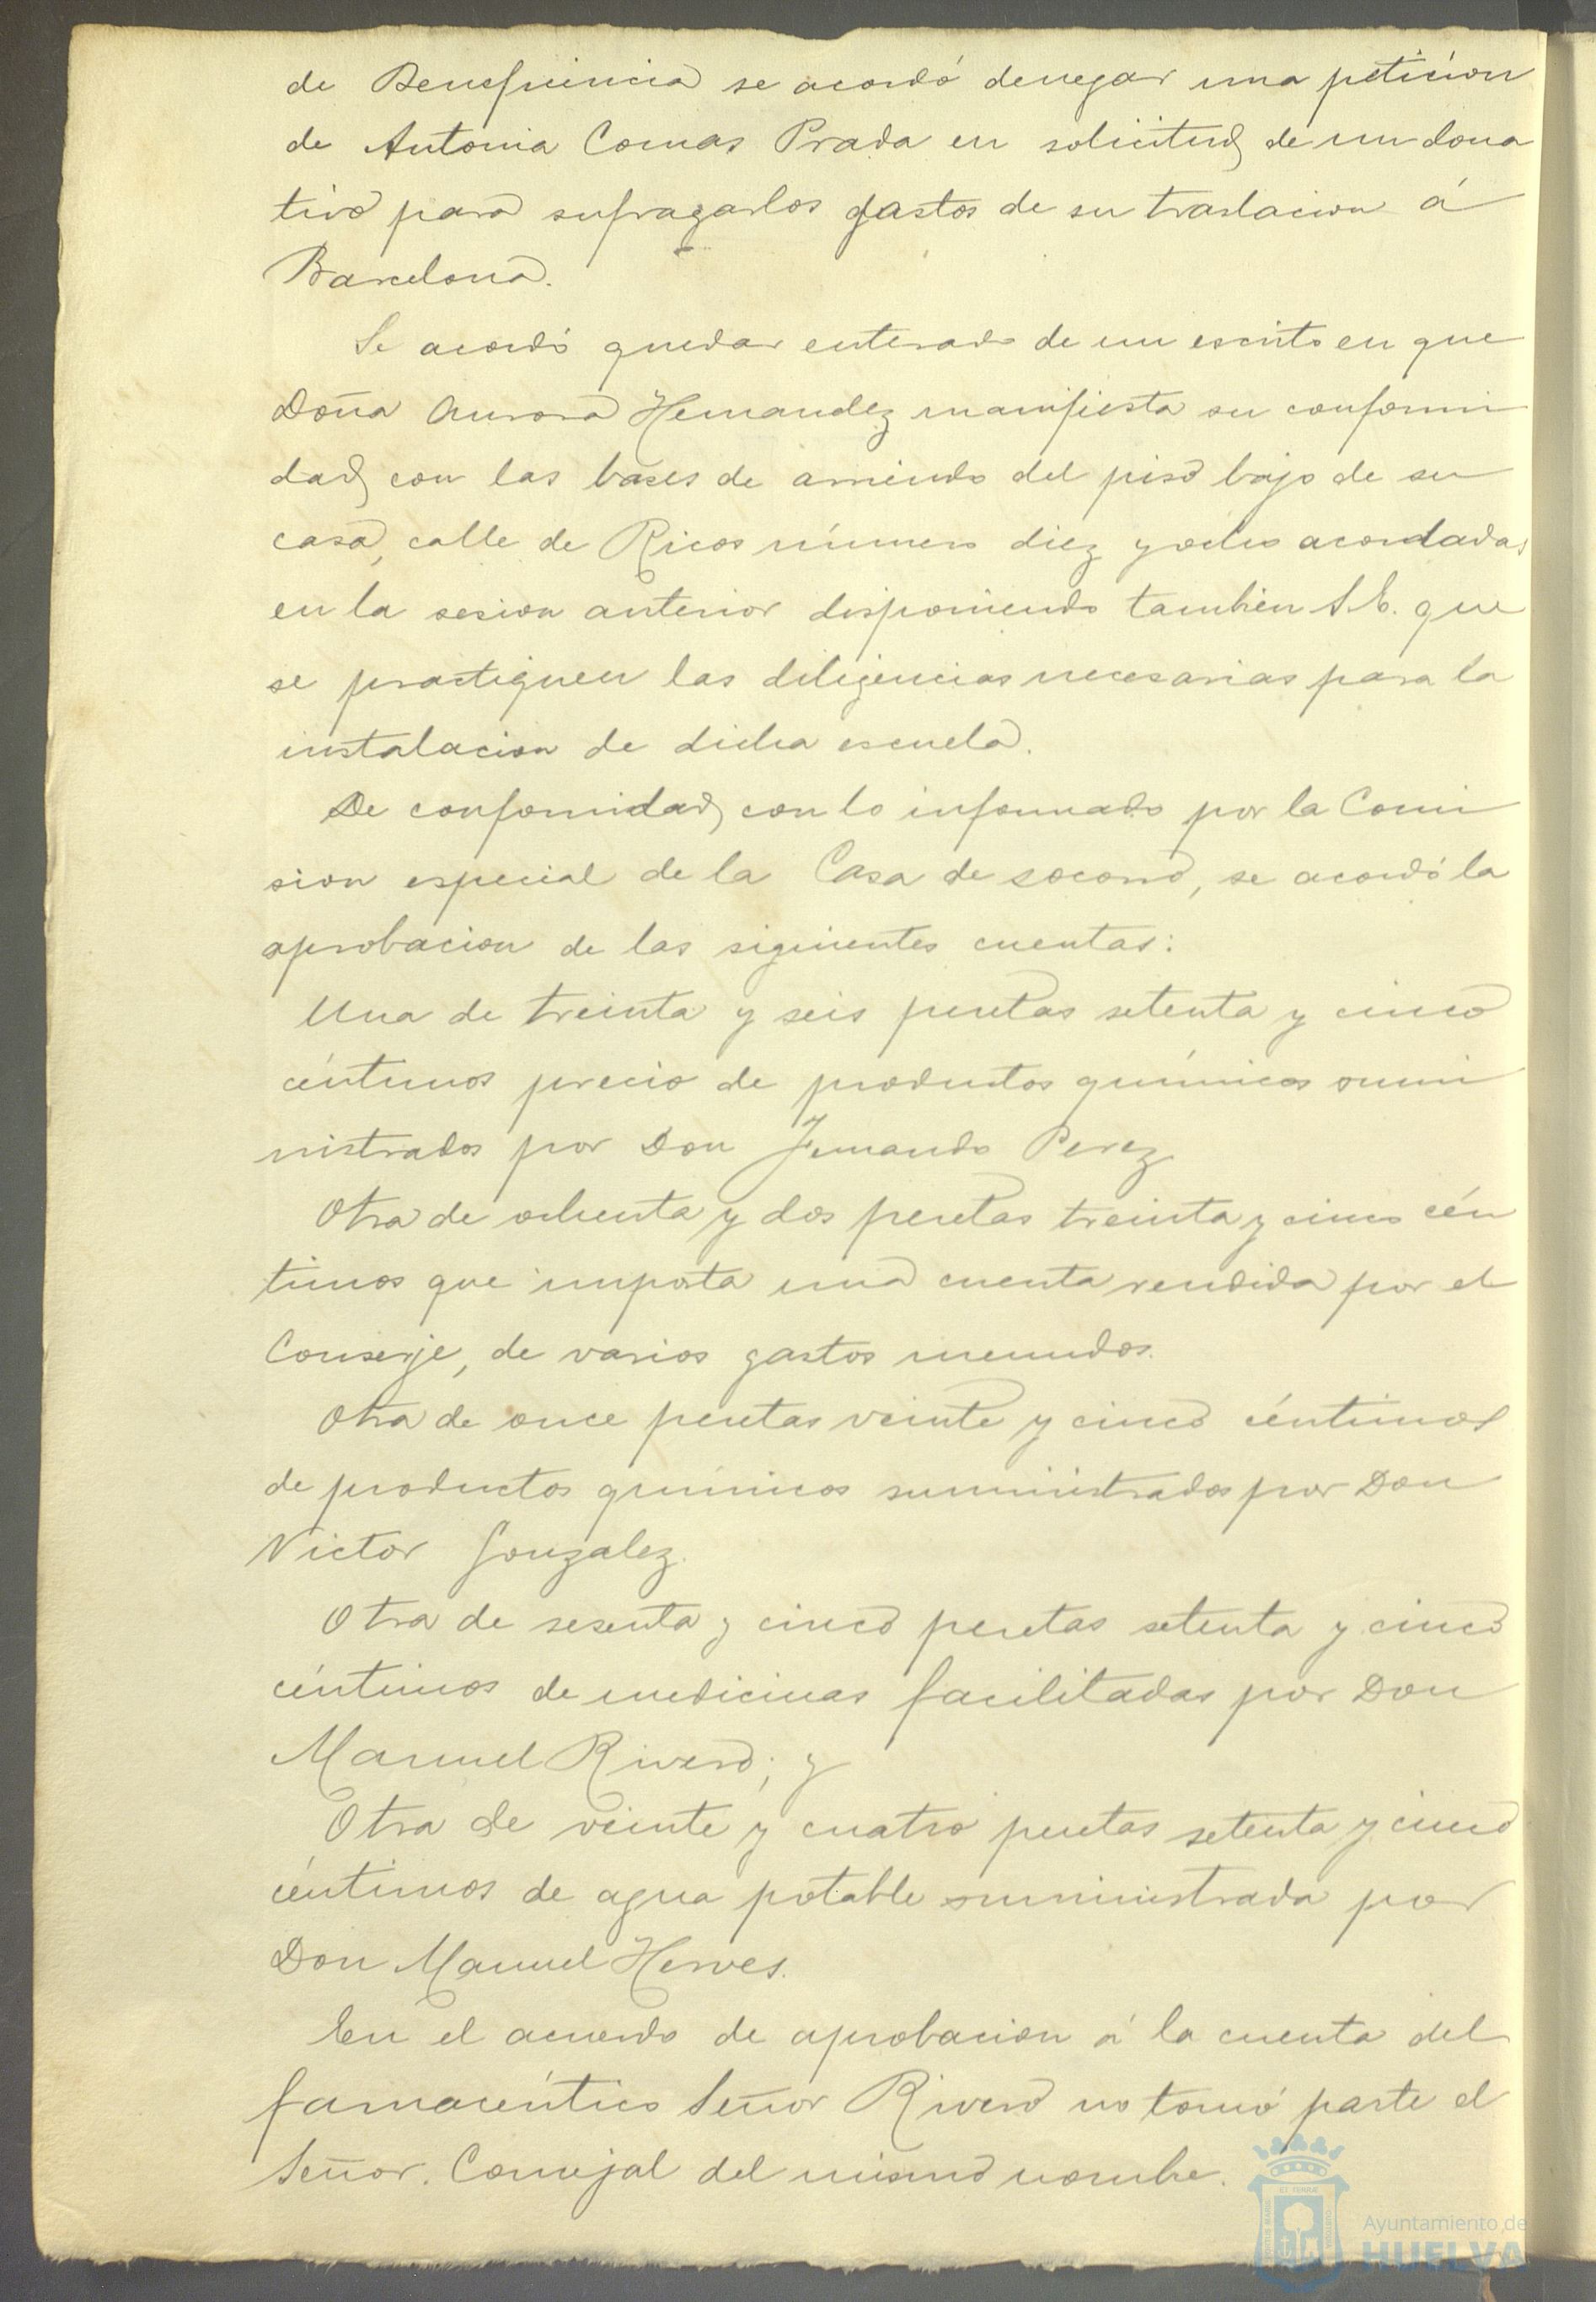 de Beneficencia se acordó denegar una petición
de Antonia Comas Prada en solicitud de un dona
tivo para sufragar los gastos de su traslacion á
Barcelona.
Se acordó quedar enterado de un escrito en que
Doña Aurora Hernandez manifiesta su conformi
dad con las bases de arriendo del piso bajo de su
casa, calle de Ricos número diez y ocho acordadas
en la sesion anterior disponiendo tambien S.E. que
se practiquen las diligencias necesarias para la
instalacion de dicha escuela.
De conformidad con lo informado por la Comi
sion especial de la Casa de socorro, se acordó la
aprobacion de las siguientes cuentas:
Una de treinta y seis pesetas setenta y cinco
céntimos precio de productos químicos sumi
nistrados por Don Fernando Perez
Otra de ochenta y dos pesetas treinta y cinco cén
timos que importa una cuenta rendida por el
Conserje, de varios gastos menudos.
Otra de once pesetas veinte y cinco céntimos
de productos químicos suministrados por Don
Victor Gonzalez.
Otra de sesenta y cinco pesetas setenta y cinco
céntimos de medicinas facilitadas por Don
Manuel Rivero; y
Otra de veinte y cuatro pesetas setenta y cinco
céntimos de agua potable suministrada por
Don Manuel Herves.
En el acuerdo de aprobacion á la cuenta del
farmacéutico Señor Rivero no tomó parte el
Señor. Concejal del mismo nombre.
Ayuntamiento de
HUELVA